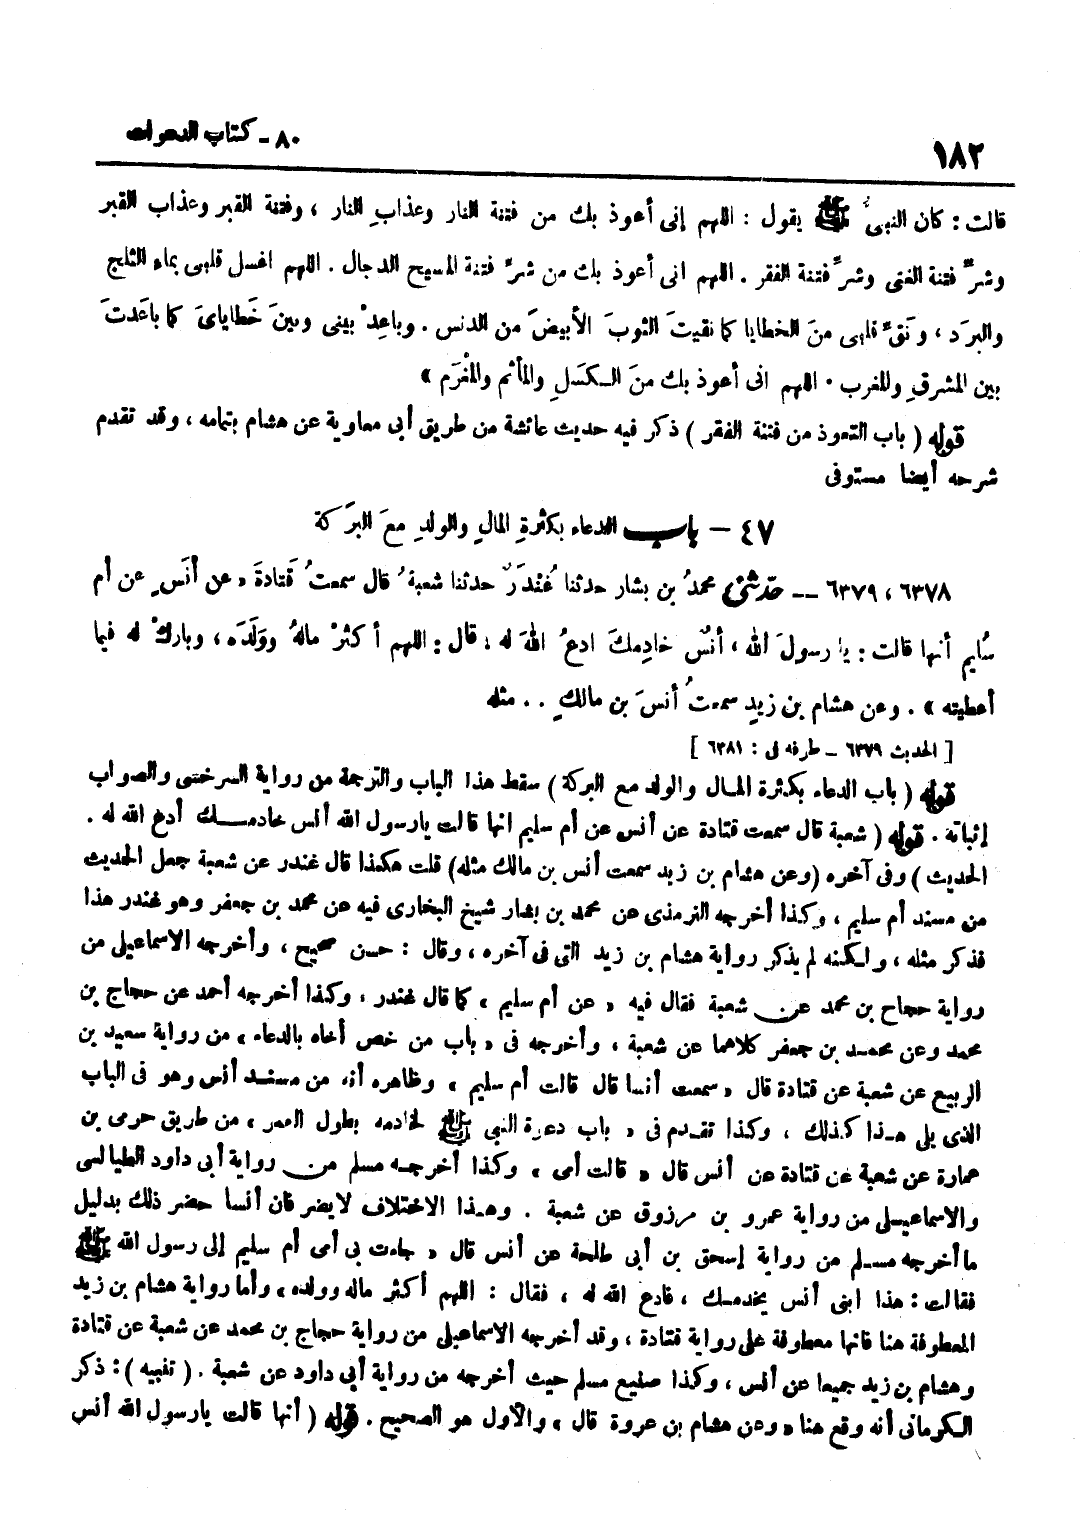 ١٨٢ ٨٠ - كتاب الدعوات
قالت : كان النبيُّ ﷺ يقول : اللهم إنى أعوذ بك من فتنة النار وعذابِ النار ، وفتنة القبر وعذاب القبر
وشرِّ فتنة الغنى وشرِّ فتنة الفقر . اللهم انى أعوذ بك من شرِّ فتنة المسيح الدجال . اللهم اغسل قلبى بماء الثلج
والبرَد ، ونَقِّ قلبى منَ الخطايا كما نقيتَ الثوبَ الأبيضَ من الدنس . وباعِدْ بينى وبينَ خَطاياىَ كما باعَدتَ
بين المشرقِ والمغرب . اللهم انى أعوذ بك منَ الكسَلِ والمأثم والمغْرَم »
قوله ( باب التعوذ من فتنة الفقر ) ذكر فيه حديث عائشة من طريق أبى معاوية عن هشام بتمامه ، وقد تقدم
شرحه أيضا مستوفى
٤٧ - باب الدعاء بكثرةِ المالِ والولدِ معَ البرَكة
٦٣٧٨ ، ٦٣٧٩ -- حدثنى محمدُ بن بشار حدثنا غُندَرٌ حدثنا شعبةُ قال سمعتُ قَتادةَ « عن أنَسٍ عن أم
سُليم أنها قالت : يا رسولَ الله ، أنسٌ خادِمكَ ادعُ اللهَ له . قال : اللهم أكثرْ مالهُ ووَلَدَه ، وباركْ له فيما
أعطيته » . وعن هشام بن زيدٍ سمعتُ أنسَ بن مالكٍ .. مثله
[ الحديث ٦٣٧٩ - طرفه فى : ٦٣٨١ ]
قوله ( باب الدعاء بكثرة المال والولد مع البركة ) سقط هذا الباب والترجمة من رواية السرخسى والصواب
إثباته . قوله ( شعبة قال سمعت قتادة عن أنس عن أم سليم انها قالت يارسول الله أنس خادمك أدع الله له .
الحديث ) وفى آخره (وعن هشام بن زيد سمعت أنس بن مالك مثله) قلت هكذا قال غندر عن شعبة جعل الحديث
من مسند أم سليم ، وكذا أخرجه الترمذى عن محمد بن بشار شيخ البخارى فيه عن محمد بن جعفر وهو غندر هذا
فذكر مثله ، ولكنه لم يذكر رواية هشام بن زيد التى فى آخره ، وقال : حسن صحيح ، وأخرجه الاسماعيلى من
رواية حجاج بن محمد عن شعبة فقال فيه « عن أم سليم » كما قال غندر ، وكذا أخرجه أحمد عن حجاج بن
محمد وعن محمد بن جعفر كلاهما عن شعبة ، وأخرجه فى « باب من خص أخاه بالدعاء » من رواية سعيد بن
الربيع عن شعبة عن قتادة قال « سمعت أنسا قال قالت أم سليم » وظاهره أنه من مسند أنس وهو فى الباب
الذى يلى هذا كذلك ، وكذا تقدم فى « باب دعوة النبى ﷺ لخادمه بطول العمر » من طريق حرمى بن
عمارة عن شعبة عن قتادة عن أنس قال « قالت أمى » وكذا أخرجه مسلم من رواية أبى داود الطيالسى
والاسماعيلى من رواية عمرو بن مرزوق عن شعبة . وهذا الاختلاف لا يضر فان أنسا حضر ذلك بدليل
ما أخرجه مسلم من رواية إسحق بن أبى طلحة عن أنس قال « جاءت بى أمى أم سليم إلى رسول الله ﷺ
فقالت : هذا ابنى أنس يخدمك ، فادع الله له ، فقال : اللهم أكثر ماله وولده » وأما رواية هشام بن زيد
المعطوفة هنا فانها معطوفة على رواية قتادة ، وقد أخرجه الاسماعيلى من رواية حجاج بن محمد عن شعبة عن قتادة
وهشام بن زيد جميعا عن أنس ، وكذا صنيع مسلم حيث أخرجه من رواية أبى داود عن شعبة . ( تنبيه ) : ذكر
الكرمانى أنه وقع هنا « وعن هشام بن عروة قال » والأول هو الصحيح . قوله ( أنها قالت يارسول الله أنس